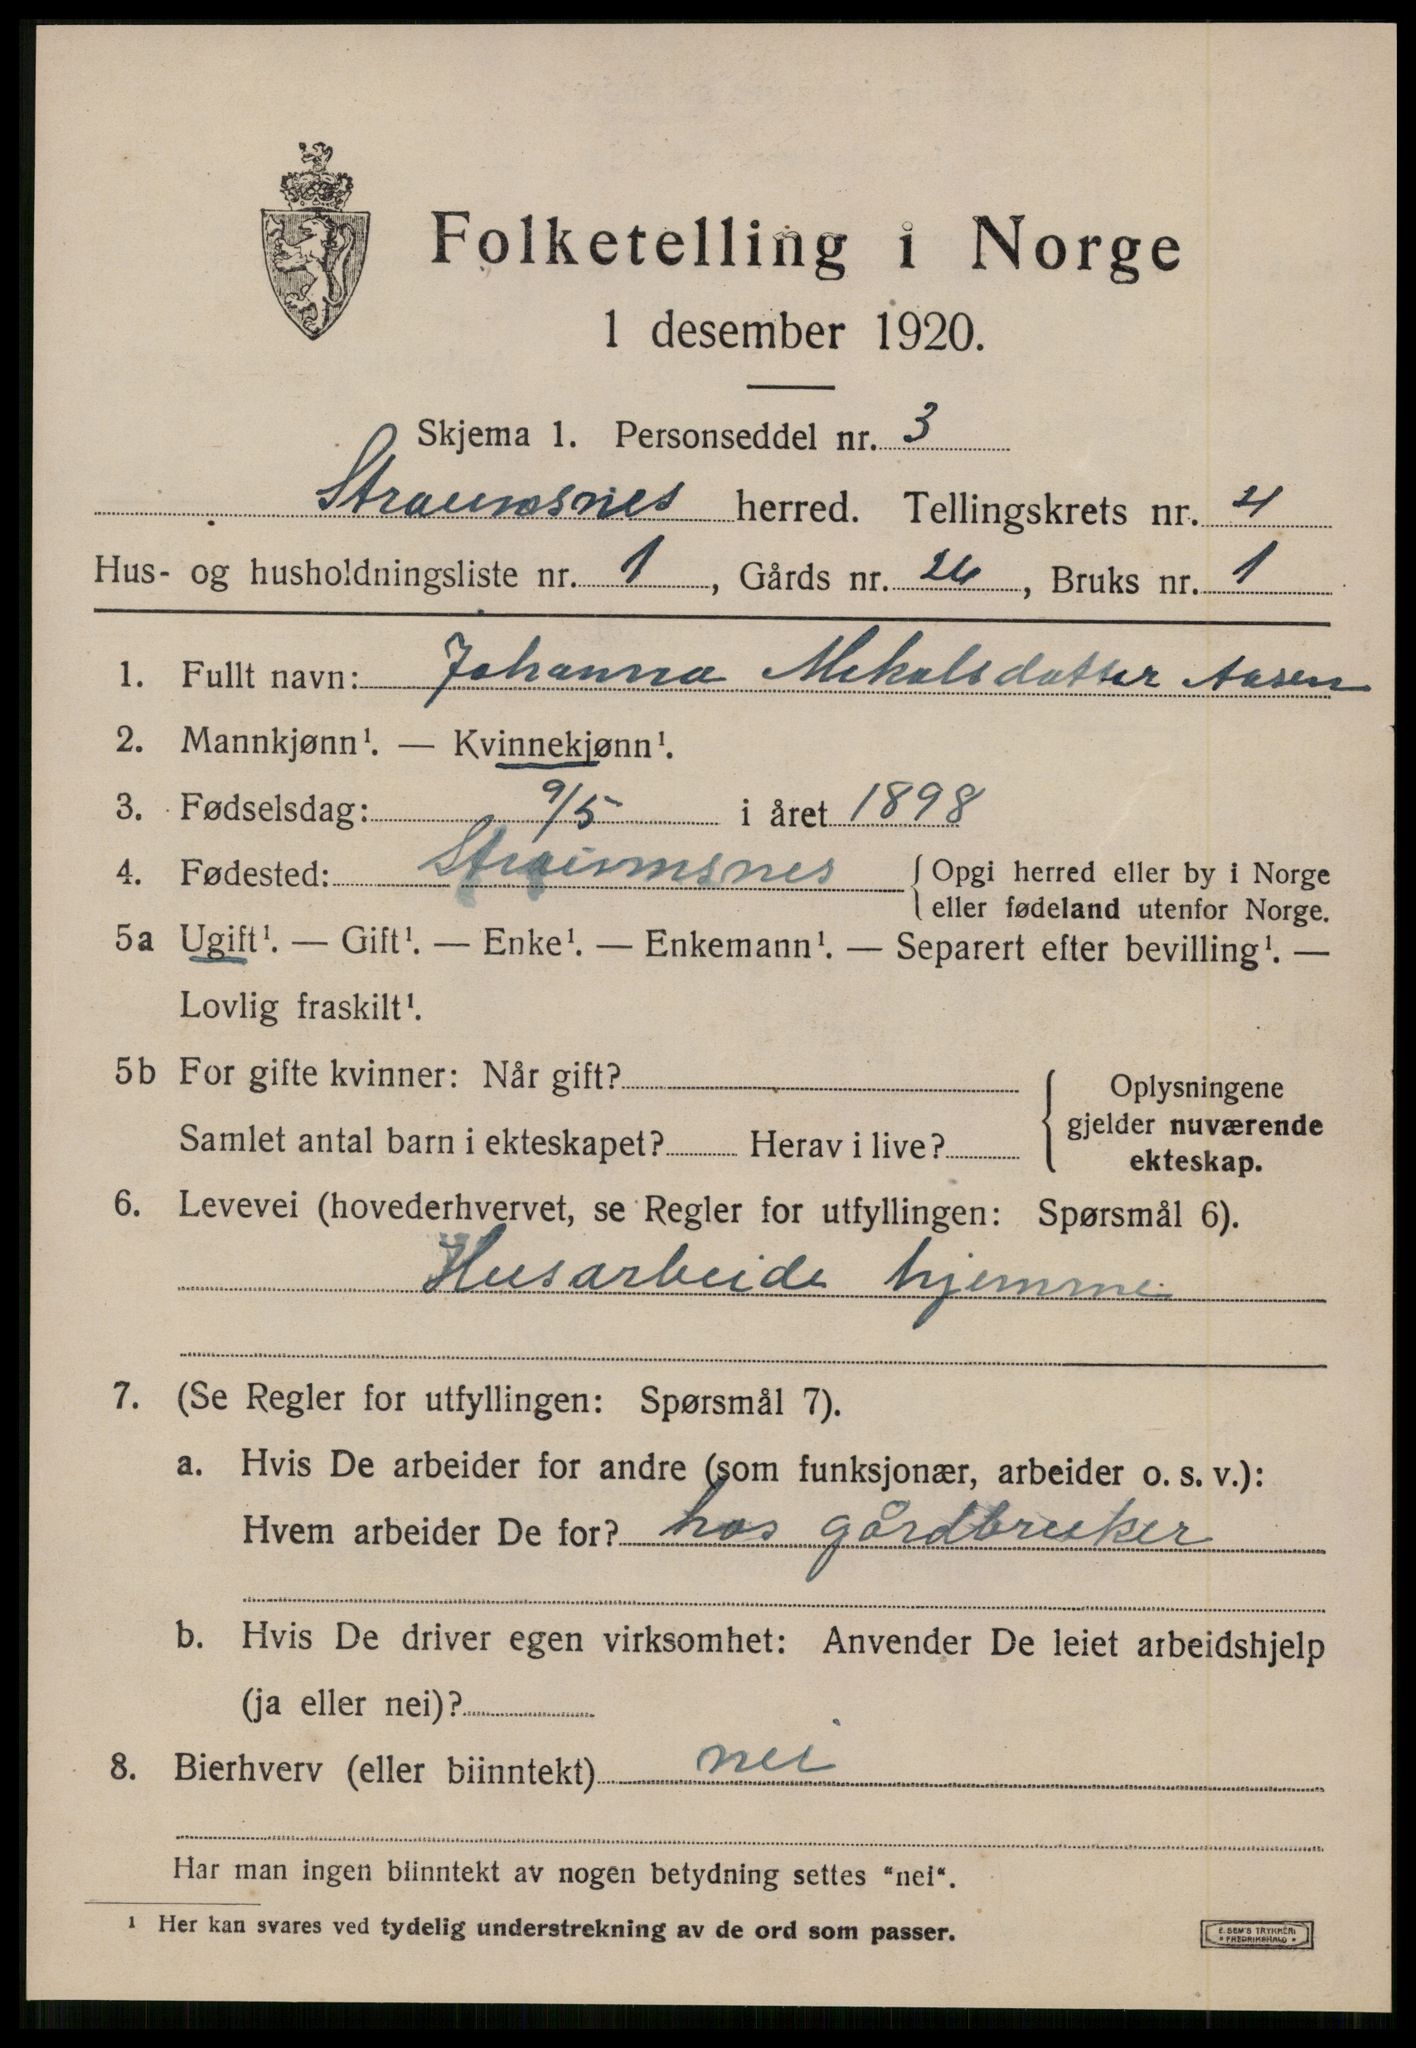 Folketelling i Norge
1 desember 1920.
Skjema 1. Personseddel nr. 3
Straumsnes herred. Tellingskrets nr. 4
Hus- og husholdningsliste nr. 1, Gårds nr. 26, Bruks nr. 1
1. Fullt navn: Johanna Mekalsdatter Aasen
2. Mannkjønn¹. — Kvinnekjønn¹.
3. Fødselsdag: 9/5 i året 1898
4. Fødested: Straumsnes { Opgi herred eller by i Norge
eller fødeland utenfor Norge.
5a Ugift¹. — Gift¹. — Enke¹. — Enkemann¹. — Separert efter bevilling¹. —
Lovlig fraskilt¹.
5b For gifte kvinner: Når gift? { Oplysningene
gjelder nuværende
ekteskap.
Samlet antal barn i ekteskapet? Herav i live?
6. Levevei (hovederhvervet, se Regler for utfyllingen: Spørsmål 6).
Husarbeide hjemme
7. (Se Regler for utfyllingen: Spørsmål 7).
a. Hvis De arbeider for andre (som funksjonær, arbeider o. s. v.):
Hvem arbeider De for? hos gårdbruker
b. Hvis De driver egen virksomhet: Anvender De leiet arbeidshjelp
(ja eller nei)?
8. Bierhverv (eller biinntekt) nei
Har man ingen biinntekt av nogen betydning settes “nei“.
¹ Her kan svares ved tydelig understrekning av de ord som passer.
E. SEM'S TRYKKERI
* FREDRIKSHALD *